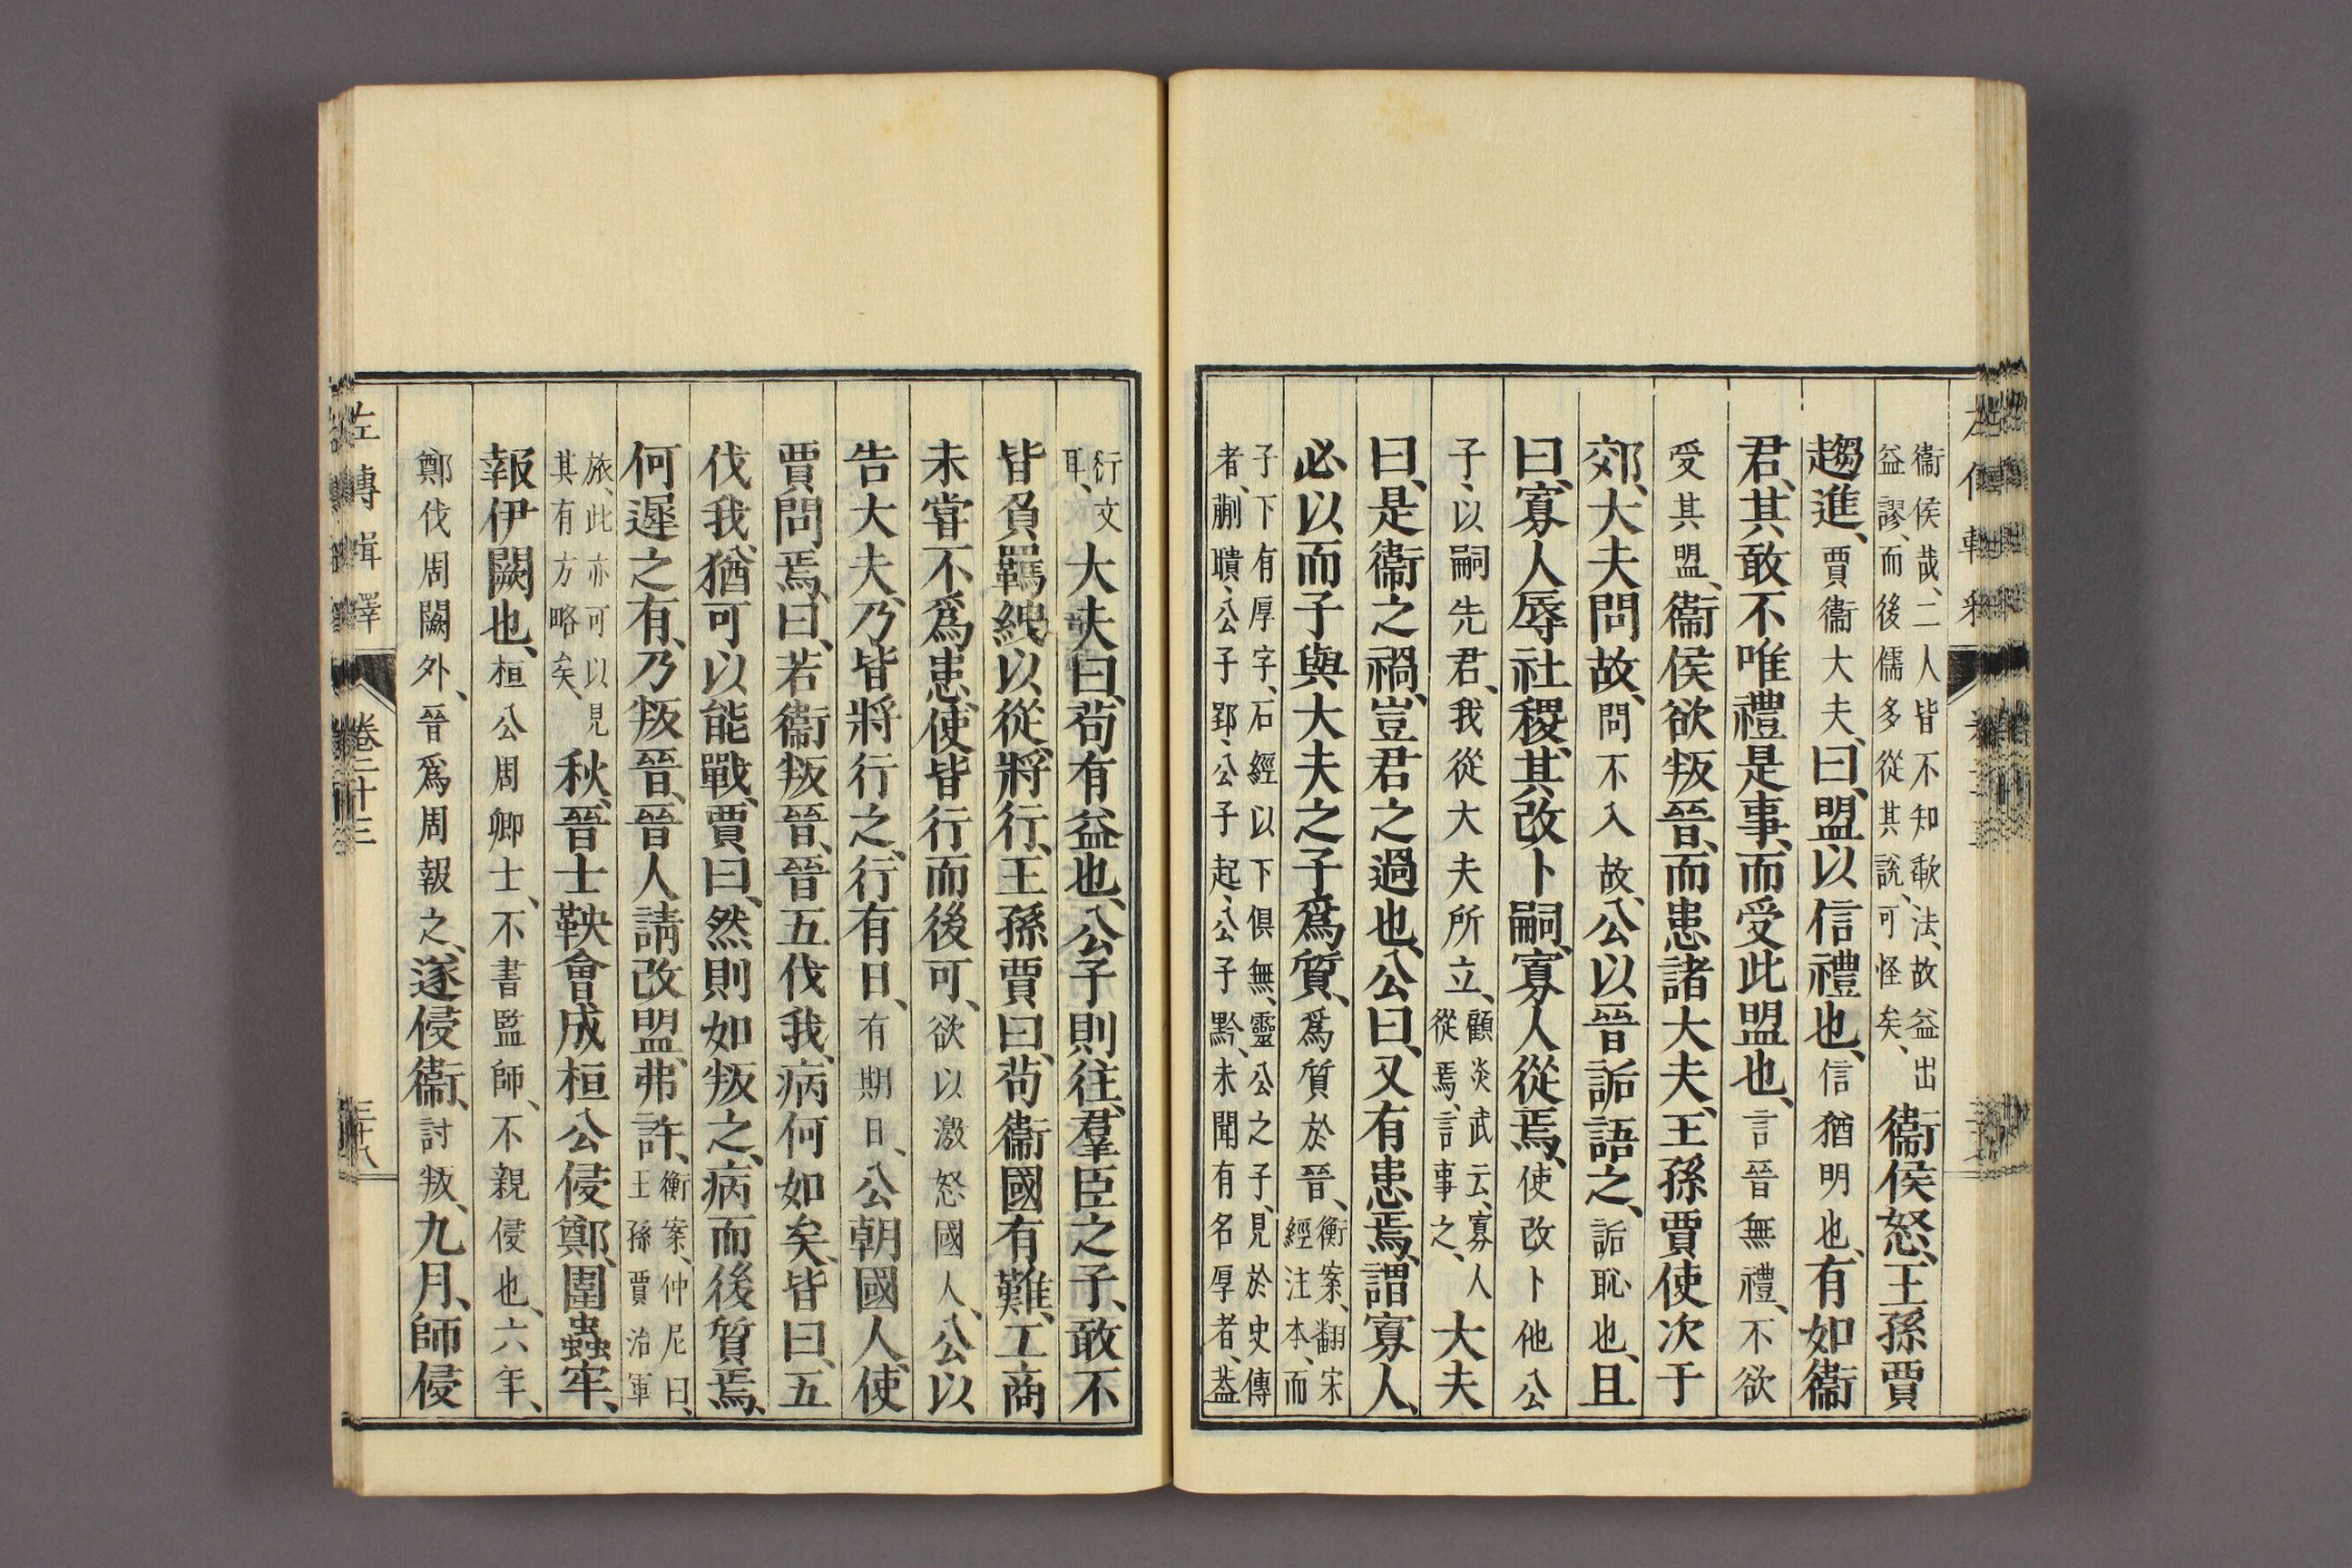 衞侯哉、二人皆不知歃法、故益出
益謬、而後儒多從其説、可怪矣、
衞侯怒、王孫賈
趨進、賈衞大夫、曰、盟以信禮也、信猶明也、有如衞
君、其敢不唯禮是事、而受此盟也、言晉無禮、不欲
受其盟、衞侯欲叛晉、而患諸大夫、王孫賈使次于
郊、大夫問故、問不入故、公以晉詬語之、詬恥也、且
曰、寡人辱社稷、其改卜嗣、寡人從焉、使改卜他公
子、以嗣先君、我從大夫所立、
顧炎武云、寡人
從焉、言事之、
大夫
曰、是衞之禍、豈君之過也、公曰、又有患焉、謂寡人、
必以而子與大夫之子爲質、爲質於晉、
衡案、翻宋
經注本、而
子下有厚字、石經以下俱無、靈公之子、見於史傳
者、蒯聵、公子郢、公子起、公子黔、未聞有名厚者、葢
衍文
耳、
大夫曰、苟有益也、公子則往、羣臣之子、敢不
皆負羈絏以從、將行、王孫賈曰、苟衞國有難、工商
未嘗不爲患、使皆行而後可、欲以激怒國人、公以
告大夫、乃皆將行之、行有日、有期日、公朝國人、使
賈問焉、曰、若衞叛晉、晉五伐我、病何如矣、皆曰、五
伐我、猶可以能戰、賈曰、然則如叛之、病而後質焉、
何遲之有、乃叛晉、晉人請改盟、弗許、
衡案、仲尼曰、
王孫賈治軍
旅、此亦可以見
其有方略矣、
秋、晉士鞅會成桓公侵鄭、圍蟲牢、
報伊闕也、桓公周卿士、不書監師、不親侵也、六年、
鄭伐周闕外、晉爲周報之、遂侵衞、討叛、九月、師侵
左傳輯釋
卷二十三
三十八